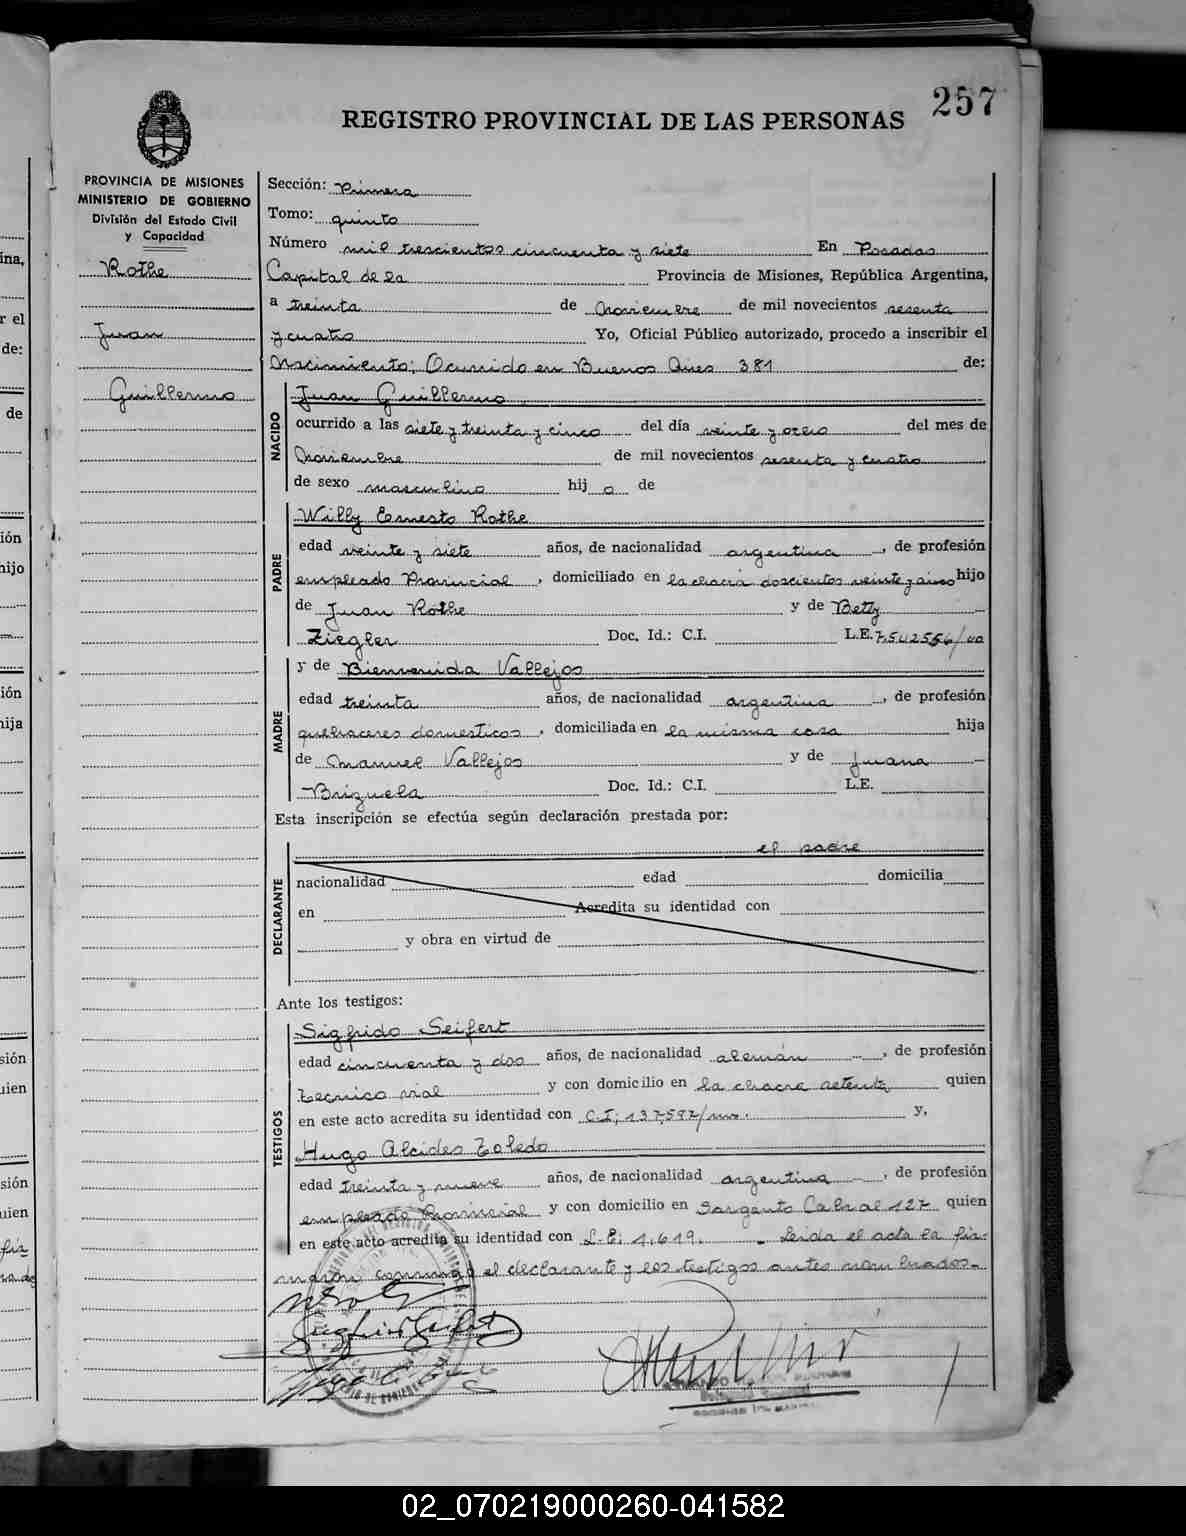 257
REGISTRO PROVINCIAL DE LAS PERSONAS
PROVINCIA DE MISIONES
MINISTERIO DE GOBIERNO
División del Estado Civil
y Capacidad
Rothe
Juan
Guillermo
Sección: Primera
Tomo: quinto
Número mil trescientos cincuenta y siete En Posadas
Capital de la Provincia de Misiones, República Argentina,
a treinta de Noviembre de mil novecientos sesenta
y cuatro Yo, Oficial Público autorizado, procedo a inscribir el
Nacimiento; Ocurrido en Buenos Aires 381 de:
NACIDO
Juan Guillermo
ocurrido a las siete y treinta y cinco del día veinte y ocho del mes de
Noviembre de mil novecientos sesenta y cuatro
de sexo masculino hij o de
PADRE
Willy Ernesto Rothe
edad veinte y siete años, de nacionalidad argentina, de profesión
empleado Provincial, domiciliado en la chacra doscientos veinte y cinco hijo
de Juan Rothe y de Betty
Ziegler Doc. Id.: C.I. L.E.
MADRE
y de Bienvenida Vallejos
edad treinta años, de nacionalidad argentina, de profesión
quehaceres domesticos, domiciliada en la misma casa hija
de Manuel Vallejos y de Juana
Brizuela Doc. Id.: C.I. L.E.
Esta inscripción se efectúa según declaración prestada por:
el padre
DECLARANTE
nacionalidad edad domicilia
en Acredita su identidad con
y obra en virtud de
Ante los testigos:
TESTIGOS
Sigfrido Seifert
edad cincuenta y dos años, de nacionalidad alemán, de profesión
tecnico vial y con domicilio en la chacra setenta quien
en este acto acredita su identidad con C.I; 137,597/ y,
Hugo Alcides Toledo
edad treinta y nueve años, de nacionalidad argentina, de profesión
empleado Provincial y con domicilio en Sargento Cabral 127 quien
en este acto acredita su identidad con L.E; 1.619. Leida el acta la fir-
maron conmigo el declarante y los testigos antes nombrados.
02_070219000260-041582